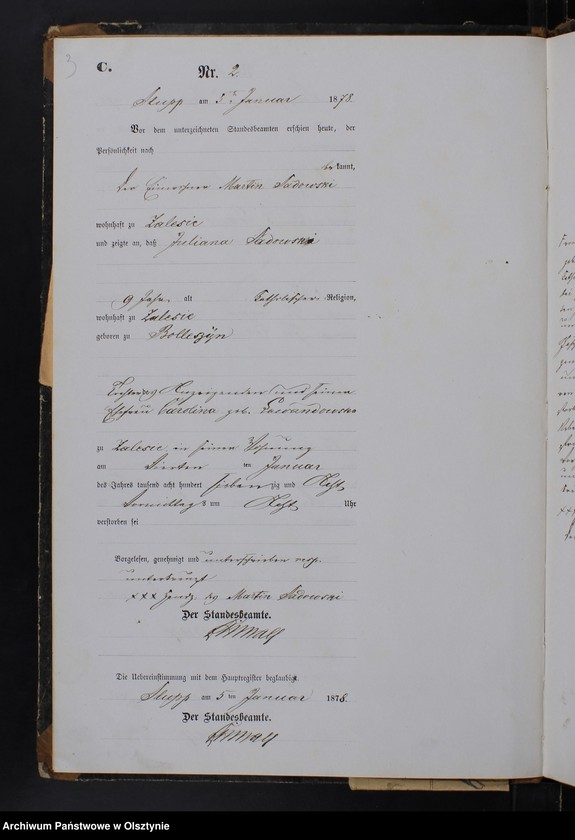 3
C.
Nr. 2.
Stupp am 5ten Januar 1878
Vor dem unterzeichneten Standesbeamten erschien heute, der
Persönlichkeit nach
bekannt,
der Martin Sadowski
wohnhaft zu Zalesie
und zeigte an, daß Juliana Sadowski
9 Jahr alt katholischer Religion,
wohnhaft zu Zalesie
geboren zu Bolleszyn
Tochter des Anzeigenden und seiner
Ehefrau Carolina geb. Lewandowska
zu Zalesie in seiner Wohnung
am vierten ten Januar
des Jahres tausend acht hundert siebenzig und Acht
Vormittags um Acht Uhr
verstorben sei
Vorgelesen, genehmigt und unterschrieben resp.
unterkreuzt
xxx Martin Sadowski
Der Standesbeamte.
Die Uebereinstimmung mit dem Hauptregister beglaubigt.
Stupp am 5ten Januar 1878.
Der Standesbeamte.
Archiwum Państwowe w Olsztynie